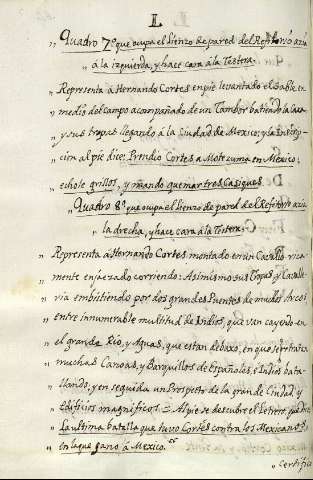 L
„ Quadro 7º que ocupa el lienzo de pared del Refitorio azia
„ a la izquierda, y hace cara â la Testera.
„ Representa â Hernando Cortes en pie levantado el Sable en
„ medio del campo acompañado de un Tambor batiendo la Caxa
„ y sus tropas llegando â la Ciudad de Mexico; y la Inscrip-
„ cion al pie dice: Prendio Cortes a Motezuma en Mexico;
„ echole grillos, y mando quemar tres Casiques.
„ Quadro 8º que ocupa el lienzo de pared del Refitorio azia
„ la drecha, y hace cara â la Testera.
„ Representa â Hernando Cortes montado en un Cavallo rica-
„ mente enjaezado corriendo: Asimismo sus Tropas, y Cavalle-
„ ria embistiendo por dos grandes Puentes de muchos Arcos
„ entre innumerable multitud de Indios, que van cayendo en
„ el grande Rio, y Aguas, que estan debaxo, en que se retratan
„ muchas Canoas, y Barquillos de Españoles e Indios bata-
„ llando, y en seguida un Prospecto de la grande Ciudad y
„ edificios magnificos. Al pie se descubre el Letrero, que dice
„ La ultima batalla que tuvo Cortes contra los Mexicanos
„ en la que gano â Mexico.
„ certifico